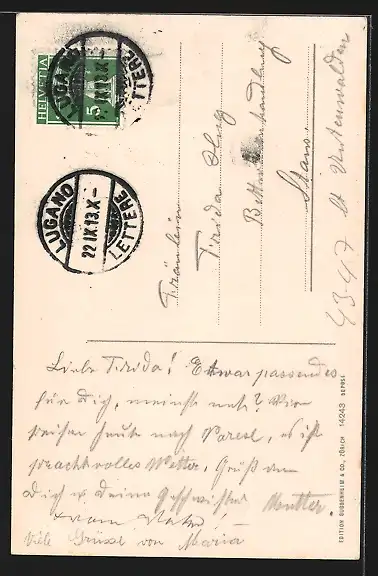 HELVETIA
5
LUGANO
LETTERE
LUGANO
22 IX. 13. X-
LETTERE
Fräulein
Frida
Bettwarenhandlung
Stans.
Kt Unterwalden
43-47
Liebe Frida! Etwas passendes
für Dich, meinst nicht? Wir
reisen heute nach es ist
prachtvolles Wetter. Gruß an
Dich & Deine Geschwister
Mutter.
Viele Grüsse von Maria
EDITION GUGGENHEIM & CO., ZÜRICH 14243 DÉPOSÉ